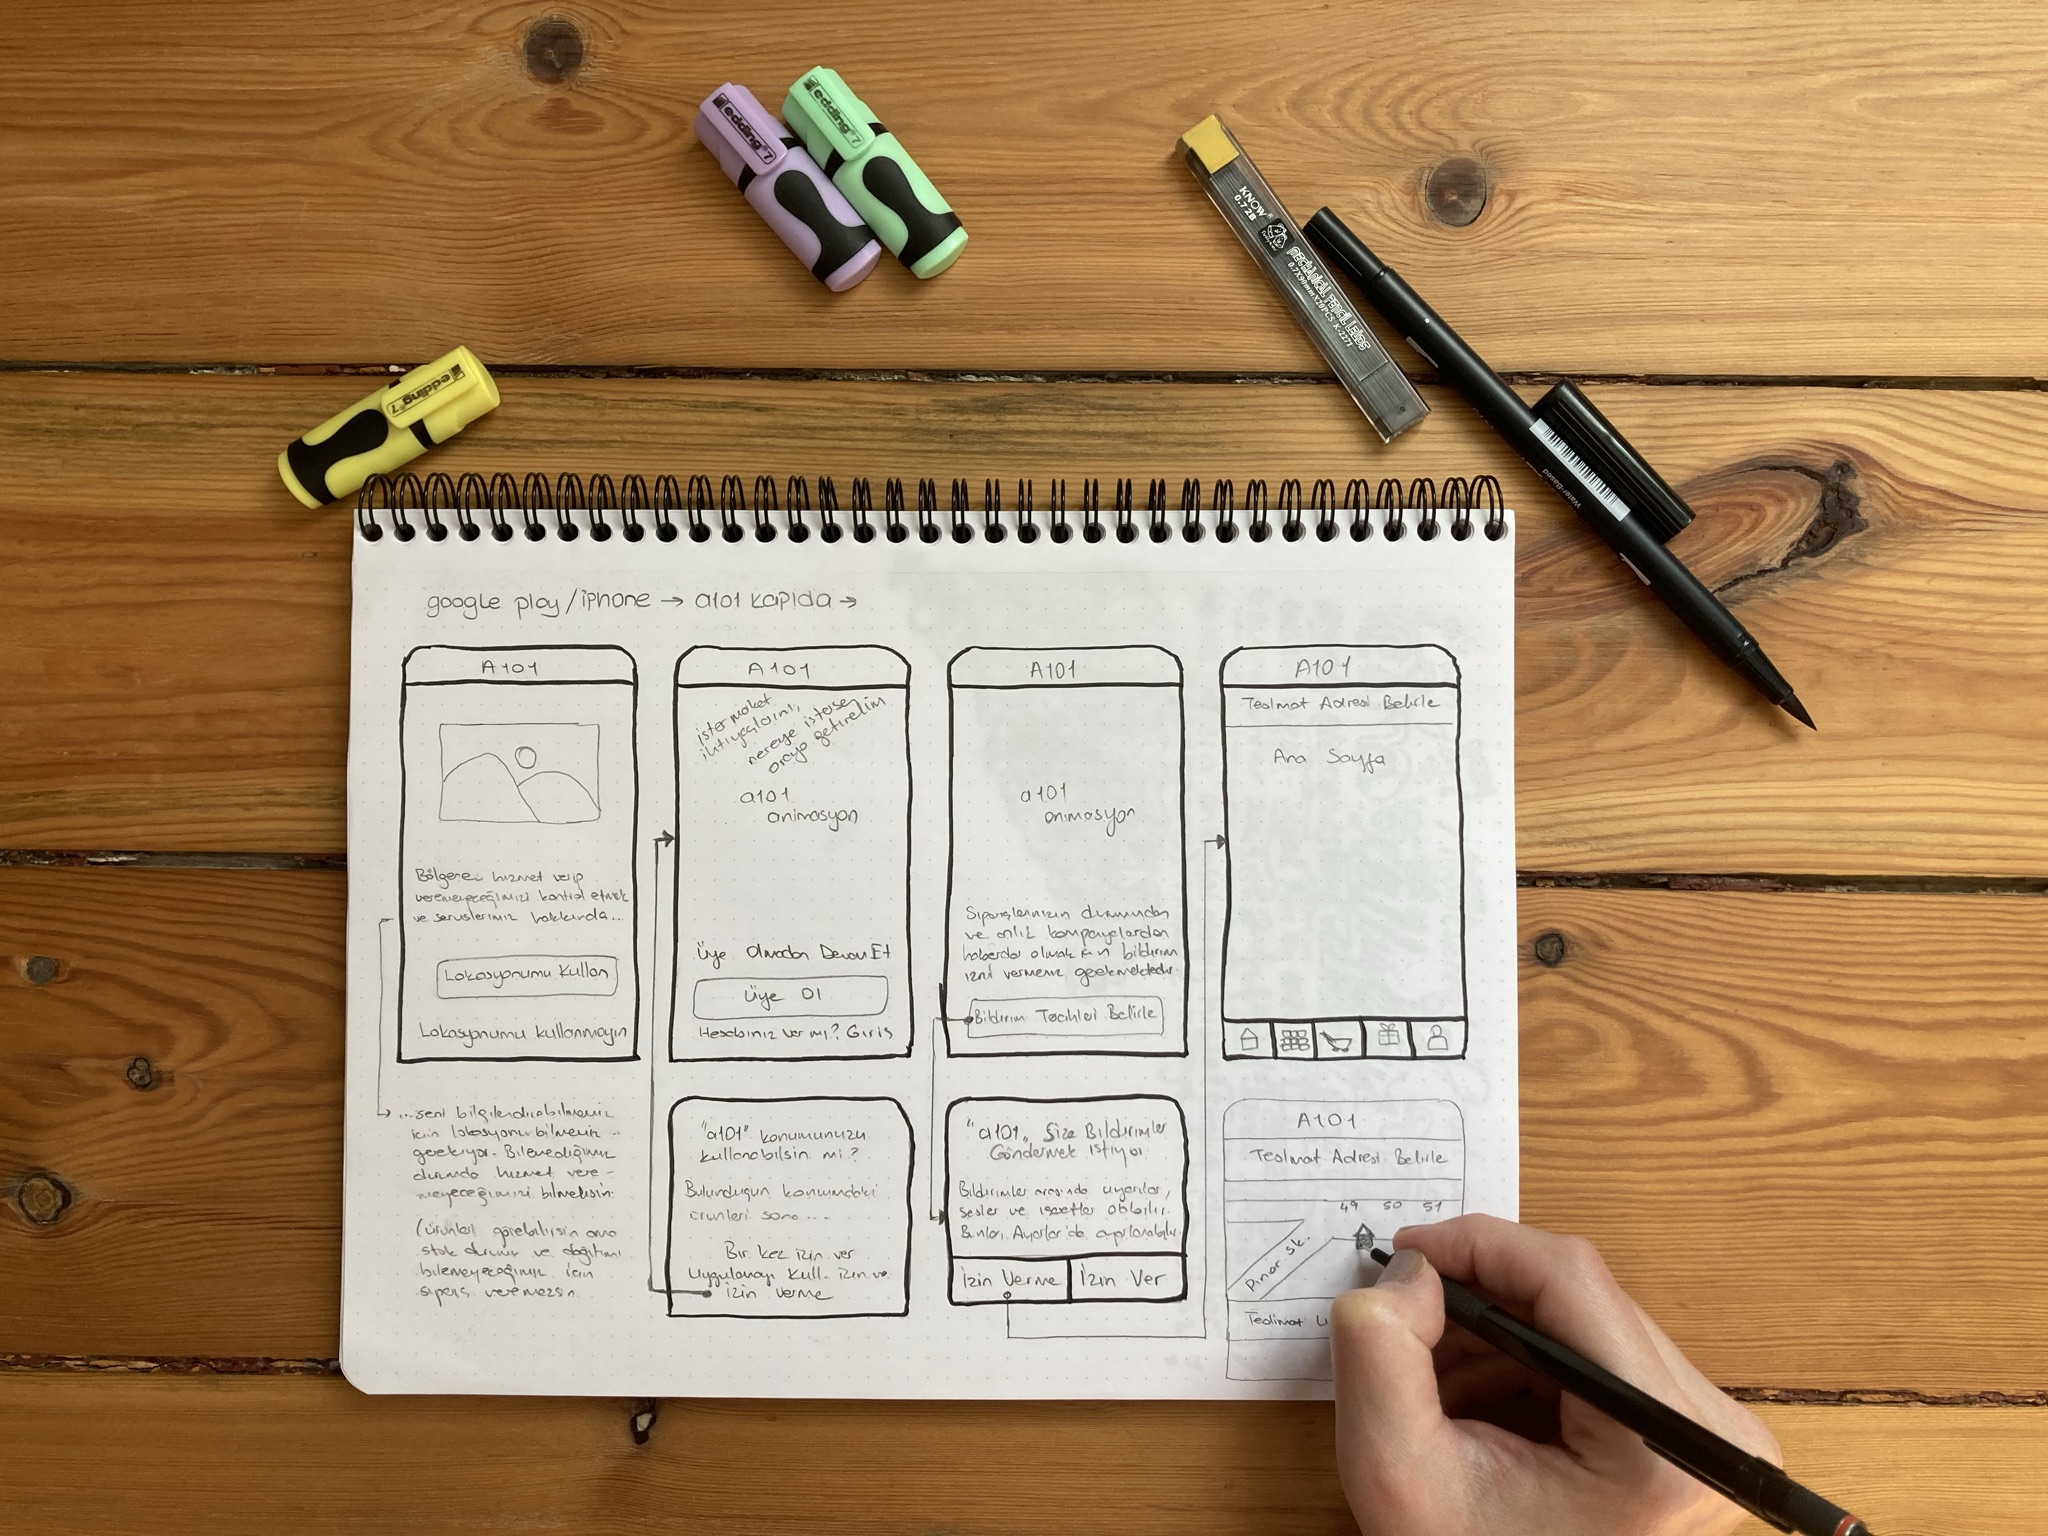 edding 7
edding 7
edding 7
KNOW
0.7 2B
MECHANICAL PENCIL LEADS
0.7X90mmX20PCS K-2271
Water-Based
google play/iphone → a101 kapıda →
A101
Bölgene hizmet verip
veremeyeceğimizi kontrol etmek
ve servislerimiz hakkında...
Lokasyonumu Kullan
Lokasyonumu kullanmayın
...seni bilgilendirebilmemiz
için lokasyonu bilmemiz
gerekiyor. Bilemediğimiz
durumda hizmet vere-
meyeceğimizi bilmelisin.
(ürünleri görebilirsin ama
stok durumu ve dağıtımı
bilemeyeceğimiz için
sipariş veremezsin.
A101
ister market
ihtiyaçlarını,
nereye istersen
oraya getirelim
a101
animasyon
Üye Olmadan Devam Et
Üye Ol
Hesabınız var mı? Giriş
"a101" konumunuzu
kullanabilsin mi?
Bulunduğun konumdaki
ürünleri sana...
Bir kez izin ver
Uygulamayı kull. izin ver
izin verme
A101
a101
animasyon
Siparişlerinizin durumundan
ve anlık kampanyalardan
haberdar olmak için bildirim
izni vermeniz gerekmektedir.
Bildirim Tercihleri Belirle
"a101" Size Bildirimler
Göndermek istiyor
Bildirimler arasında uyarılar,
sesler ve işaretler olabilir.
Bunları Ayarlar'da ayarlanabilir.
izin Verme
izin Ver
A101
Teslimat Adresi Belirle
Ana Sayfa
A101
Teslimat Adresi Belirle
49 50 51
Pınar sk.
Teslimat